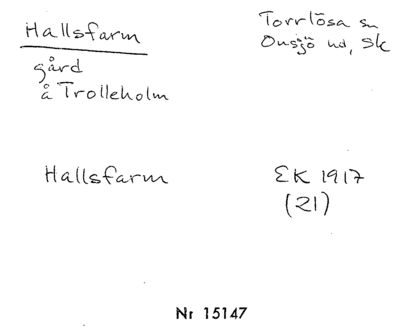 Hallsfarm
gård
å Trolleholm
Torrlösa sn
Onsjö hd, Sk
Hallsfarm
EK 1917
(21)
Nr 15147